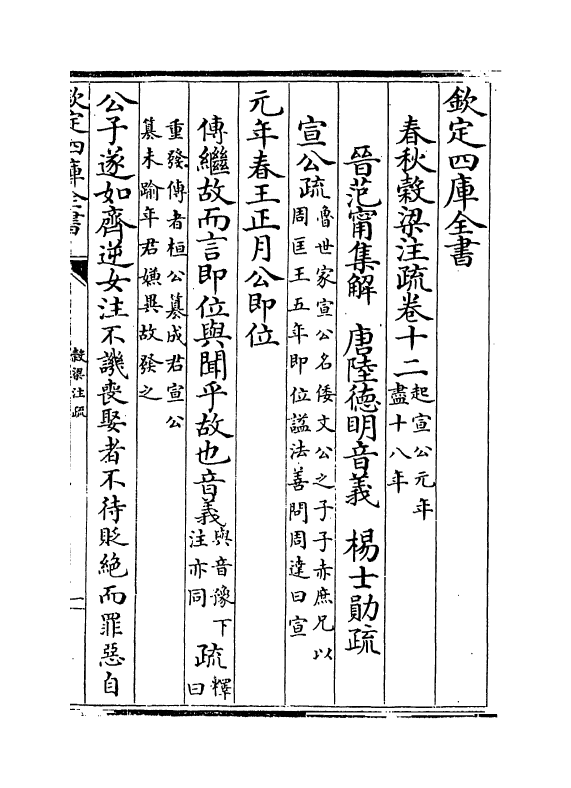 欽定四庫全書
春秋穀梁注疏卷十二起宣公元年
盡十八年
晉范甯集解 唐陸德明音義 楊士勛疏
宣公疏魯世家宣公名倭文公之子子赤庶兄以
周匡王五年即位諡法善問周達曰宣
元年春王正月公即位
傳繼故而言即位與聞乎故也音義與音豫下
注亦同 疏釋
曰
重發傳者桓公篡成君宣公
篡未踰年君嫌異故發之
公子遂如齊逆女注不譏喪娶者不待貶絶而罪惡自
欽定四庫全書
穀梁注疏
一